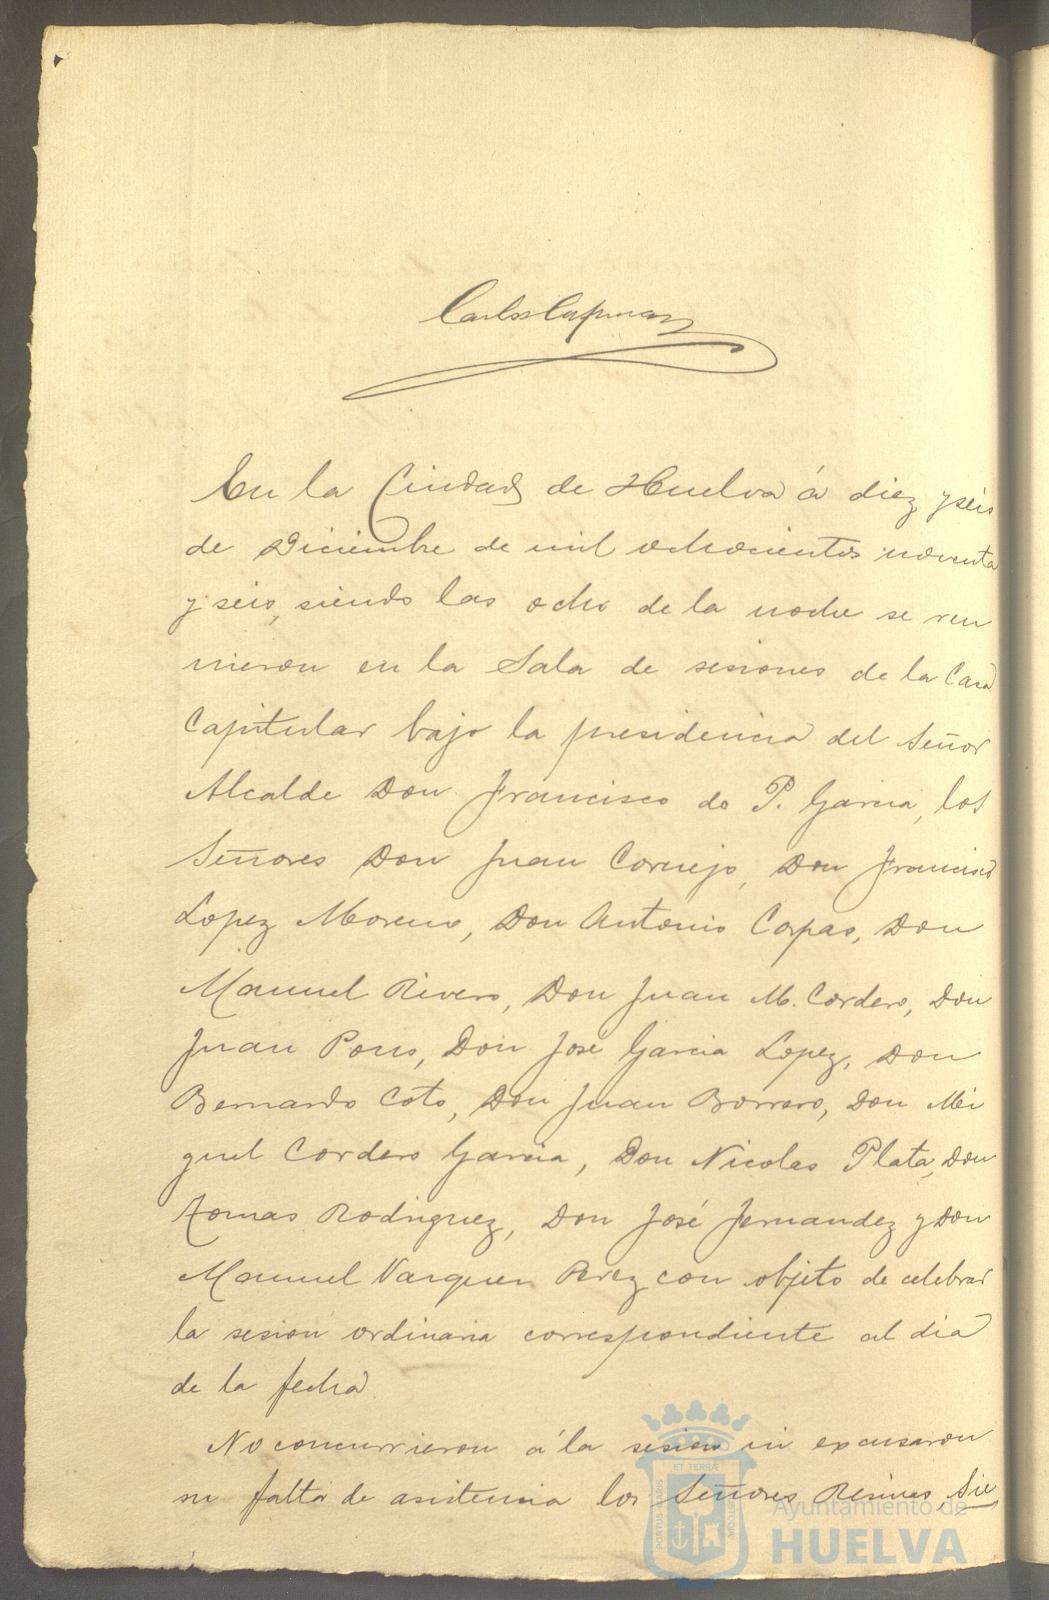 Carlos
En la Ciudad de Huelva á diez y seis
de Diciembre de mil ochocientos noventa
y seis, siendo las ocho de la noche se reu
nieron en la Sala de sesiones de la Casa
Capitular bajo la presidencia del Señor
Alcalde Don Francisco de P. Garcia, los
Señores Don Juan Cornejo, Don Francisco
Lopez Moreno, Don Antonio Corpas, Don
Manuel Rivero, Don Juan M. Cordero, Don
Juan Pons, Don José Garcia Lopez, Don
Bernardo Coto, Don Juan Borrero, Don Mi
guel Cordero Garcia, Don Nicolas Plata, Don
Tomas Rodriguez, Don José Fernandez y Don
Manuel Vazquez Perez con objeto de celebrar
la sesion ordinaria correspondiente al dia
de la fecha.
No concurrieron á la sesion ni excusaron
su falta de asistencia los Señores Resines, Sie
PORTUS MARIS
ET TERRÆ
CUSTODIA
Ayuntamiento de
HUELVA